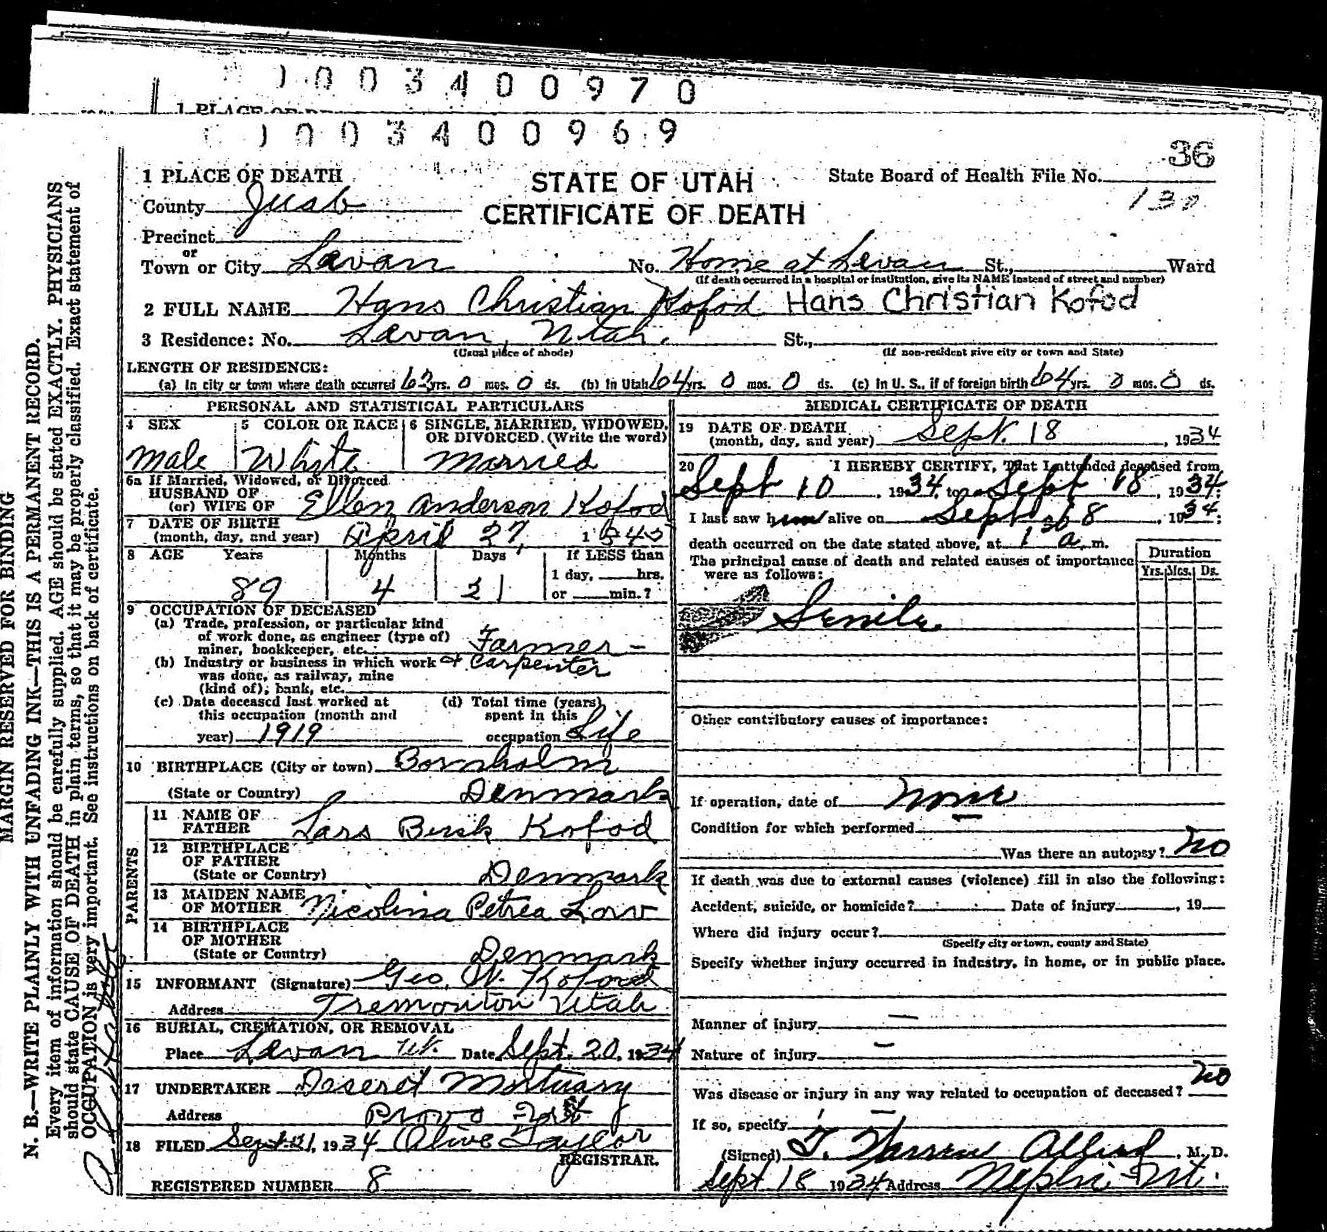 0 0 3 4 0 0 9 7 0
1 PLACE OF
0 0 3 4 0 0 9 6 9
36
1 PLACE OF DEATH
STATE OF UTAH
State Board of Health File No.
130
County Juab
CERTIFICATE OF DEATH
Precinct
or
Town or City Levan No. Home at Levan St., Ward
(If death occurred in a hospital or institution, give its NAME instead of street and number)
2 FULL NAME Hans Christian Kofod Hans Christian Kofod
3 Residence: No. Levan, Utah. St.,
(Usual place of abode) (If non-resident give city or town and State)
LENGTH OF RESIDENCE:
(a) In city or town where death occurred 63 yrs. 0 mos. 0 ds. (b) In Utah 64 yrs. 0 mos. 0 ds. (c) In U. S., if of foreign birth 64 yrs. 0 mos. 0 ds.
PERSONAL AND STATISTICAL PARTICULARS
4 SEX 5 COLOR OR RACE 6 SINGLE, MARRIED, WIDOWED,
OR DIVORCED. (Write the word)
Male White Married
6a If Married, Widowed, or Divorced
HUSBAND OF
(or) WIFE OF Ellen Anderson Kofod
7 DATE OF BIRTH
(month, day, and year) April 27, 1845
8 AGE Years Months Days If LESS than
1 day, hrs.
89 4 21 or min.?
9 OCCUPATION OF DECEASED
(a) Trade, profession, or particular kind
of work done, as engineer (type of)
miner, bookkeeper, etc. Farmer –
(b) Industry or business in which work & Carpenter
was done, as railway, mine
(kind of); bank, etc.
(c) Date deceased last worked at (d) Total time (years)
this occupation (month and spent in this
year) 1919 occupation Life
10 BIRTHPLACE (City or town) Bornholm
(State or Country) Denmark
PARENTS
11 NAME OF
FATHER Lars Kofod
12 BIRTHPLACE
OF FATHER
(State or Country) Denmark
13 MAIDEN NAME
OF MOTHER Nicolina Petrea
14 BIRTHPLACE
OF MOTHER
(State or Country) Denmark
15 INFORMANT (Signature) Geo. W. Koford
Address Tremonton Utah
16 BURIAL, CREMATION, OR REMOVAL
Place Levan Ut. Date Sept. 20, 1934
17 UNDERTAKER Deseret Mortuary
Address Provo
18 FILED Sept 21, 1934 Olive Taylor
REGISTRAR.
REGISTERED NUMBER 8
MEDICAL CERTIFICATE OF DEATH
19 DATE OF DEATH
(month, day, and year) Sept. 18, 1934
20 I HEREBY CERTIFY, That I attended deceased from
Sept 10, 1934, to Sept 18, 1934;
I last saw him alive on Sept 18, 1934;
death occurred on the date stated above, at 1 a. m.
The principal cause of death and related causes of importance
were as follows:
Duration
Yrs. Mos. Ds.
Senile
Other contributory causes of importance:
If operation, date of None
Condition for which performed
Was there an autopsy? No
If death was due to external causes (violence) fill in also the following:
Accident, suicide, or homicide? Date of injury , 19
Where did injury occur?
(Specify city or town, county and State)
Specify whether injury occurred in industry, in home, or in public place.
Manner of injury —
Nature of injury —
Was disease or injury in any way related to occupation of deceased? No
If so, specify —
(Signed) Allred, M. D.
Sept 18 1934 Address Nephi Ut.
MARGIN RESERVED FOR BINDING
N. B.—WRITE PLAINLY WITH UNFADING INK—THIS IS A PERMANENT RECORD.
Every item of information should be carefully supplied. AGE should be stated EXACTLY. PHYSICIANS
should state CAUSE OF DEATH in plain terms, so that it may be properly classified. Exact statement of
OCCUPATION is very important. See instructions on back of certificate.